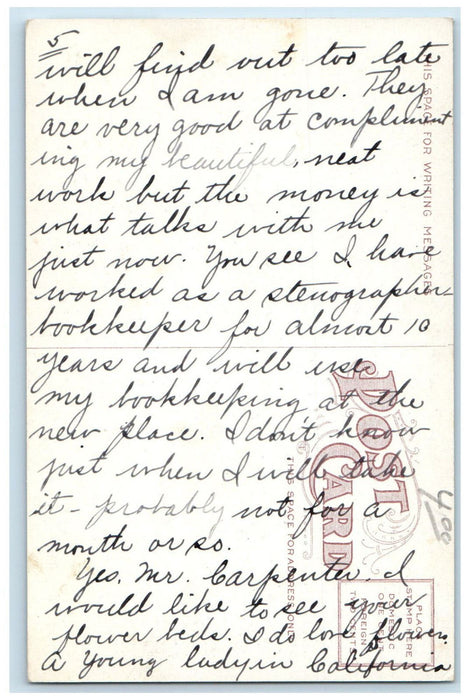 5
will find out too late
when I am gone. They
are very good at compliment
ing my beautiful, neat
work but the money is
what talks with me
just now. You see I have
worked as a stenographer-
bookkeeper for almost 10
years and will use
my bookkeeping at the
new place. I don't know
just when I will take
it - probably not for a
month or so.
Yes, Mr. Carpenter, I
would like to see your
flower beds. I do love flowers.
A Young lady in California
THIS SPACE FOR WRITING MESSAGES
POST CARD
THIS SPACE FOR ADDRESS ONLY
PLACE
STAMP HERE
DOMESTIC
ONE CENT
FOREIGN
TWO CENTS
4.00